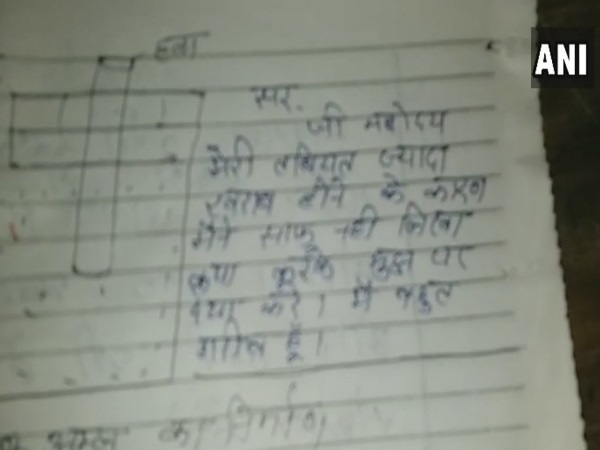 हवा
ANI
सर.
जी महोदय
मेरी तबियत ज्यादा
खराब होने के कारण
मैने साफ नही लिखा
कृपा करके मुझ पर
दया करे। मैं बहुत
गरीब हूँ।
अम्ल का निर्माण